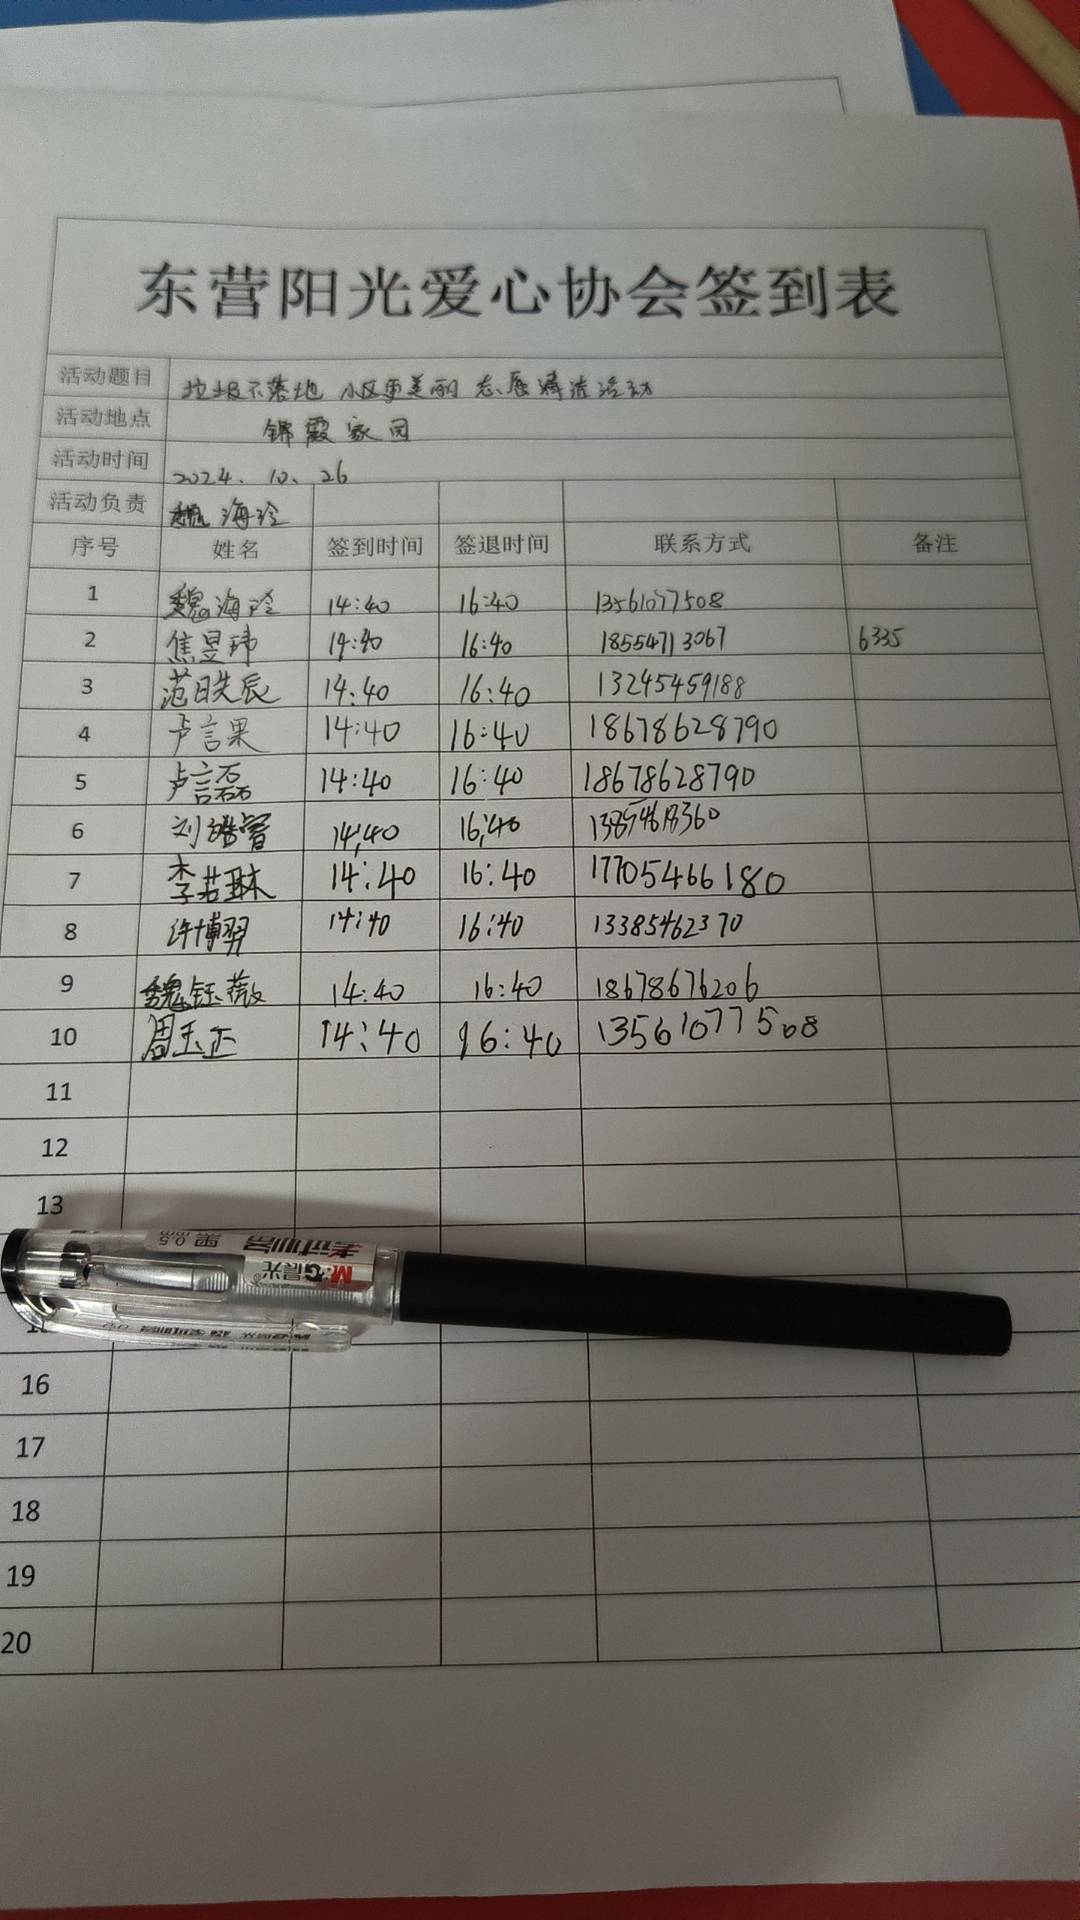 东营阳光爱心协会签到表
活动题目 垃圾不落地 小区更美丽 志愿清洁活动
活动地点 锦霞家园
活动时间 2024. 10. 26
活动负责 魏海玲
序号 姓名 签到时间 签退时间 联系方式 备注
1 魏海玲 14:40 16:40 13561077508
2 焦昱玮 14:40 16:40 18554713067 6335
3 范日失辰 14:40 16:40 13245459188
4 卢言果 14:40 16:40 18678628790
5 卢言磊 14:40 16:40 18678628790
6 刘 14:40 16:40
7 李若琳 14:40 16:40 17705466180
8 许博羿 14:40 16:40 13385462370
9 魏钰薇 14:40 16:40 18678676206
10 周玉正 14:40 16:40 13561077508
11
12
13
16
17
18
19
20
考试必备 黑 0.5mm
M&G晨光